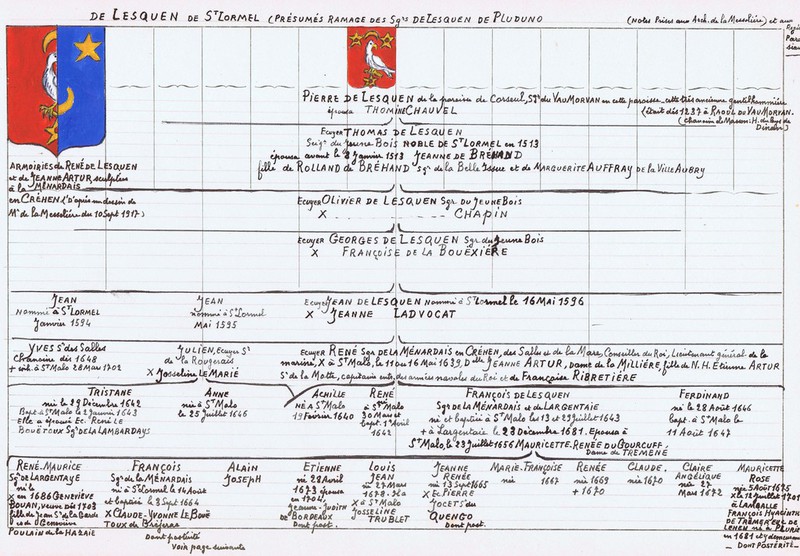 DE LESQUEN DE S^T LORMEL (PRÉSUMÉS RAMAGE DES Sgrs DE LESQUEN DE PLUDUNO
(Notes Prises aux Arch. de la Messelière) et aux
PIERRE DE LESQUEN de la paroisse de Corseul, Sgr du VAU MORVAN en cette paroisse - cette très ancienne gentilhommière
épousa THOMINE CHAUVEL
(était dès 1237 à RAOUL DU VAU MORVAN.
Ecuyer THOMAS DE LESQUEN
Seigr du Jeune Bois NOBLE DE S^T LORMEL en 1513
épousa avant le 8 Janvier 1513 JEANNE DE BRÉHAND
fille de ROLLAND DE BRÉHAND Sgr de la Belle Issue et de MARGUERITE AUFFRAY DE LA VILLE AUBRY
ARMOIRIES de RENÉ DE LESQUEN
et de JEANNE ARTUR, sculptées
à la MÉNARDAIS
en CRÉHEN (d'après un dessin de
Mr de la Messelière du 10 Sept 1917)
Ecuyer OLIVIER DE LESQUEN Sgr du JEUNE BOIS
X CHAPIN
Ecuyer GEORGES DE LESQUEN Sgr du Jeune Bois
X FRANÇOISE DE LA BOUËXIÈRE
JEAN
nommé à S^T LORMEL
Janvier 1594
JEAN
nommé à S^t Lormel
Mai 1595
Ecuyer JEAN DE LESQUEN nommé à S^t Lormel le 16 Mai 1596
X JEANNE LADVOCAT
YVES Sr des Salles
Chanoine dès 1648
+ S^t Malo 28 Mars 1702
JULIEN, Ecuyer Sr
de la Rougerais
X Josseline LE MARIÉ
Ecuyer RENÉ Sgr DE LA MÉNARDAIS en CRÉHEN, des Salles et de la Mare, Conseiller du Roi, Lieutenant général de la
marine, X à S^t MALO, le 11 16 Mai 1639, Dlle JEANNE ARTUR, DAME DE LA MILLIÈRE, fille de N.H. Etienne ARTUR
Sr de la Motte, capitaine des armées navales du Roi et de Françoise RIBRETIÈRE
TRISTANE
née le 29 Décembre 1642
Bapt. S^t Malo le 2 Janvier 1643
Elle a épousé Ec. René LE
BOUËTOUX Sgr DE LA LAMBARDAYS
ANNE
née à S^t Malo
le 25 Juillet 1646
ACHILLE
NÉ A S^T MALO
19 Février 1640
RENÉ
à S^t Malo
30 Mars et
bapt. 1er Avril
1642
FRANÇOIS DE LESQUEN
Sgr DE LA MÉNARDAIS et de LARGENTAIE
né et baptisé à S^t Malo les 13 et 29 Juillet 1643
+ à Largentaie le 28 Décembre 1681. Epousa à
S^t Malo, le 23 Juillet 1656 MAURICETTE-RENÉE DU GOURCUFF.
Dame de TREMENE
FERDINAND
né le 28 Août 1646
Bapt. à S^t Malo le
11 Août 1647
RENÉ-MAURICE
Sgr DE LARGENTAYE
né le
X en 1686 GENEVIÈVE
ROUAN, veuve DU 1703
fille de Jean Sr de la Garde
et de Geneviève
POULAIN DE LA HAZAIE
FRANÇOIS
Sgr de la MÉNARDAIS
né à S^t Lormel le 14 Août
et baptisé le 8 Sept 1664
X CLAUDE-YVONNE LE BOUË
TOUX de
Dont postérité
Voir page suivante
ALAIN
JOSEPH
ETIENNE
né 28 Avril
1673 épousa
en 1704
Jeanne-Judith
DE BORDEAUX
Dont post.
LOUIS
JEAN
né 27 Mars
1678
X à S^t Malo
JOSSELINE
TRUBLET
JEANNE
RENÉE
née 13 Sept 1665
X Ec PIERRE
JOCET du
QUENGO
Dont post.
MARIE-FRANÇOISE
née 1667
RENÉE
née 1669
+ 1670
CLAUDE.
née 1670
CLAIRE
ANGÉLIQUE
née 27
Mars 1672
MAURICETTE
ROSE
née 5 Août 1675
X le 12 Juillet 1701
à LAMBALLE
FRANÇOIS HYACINTHE
DONT POSTÉRITÉ